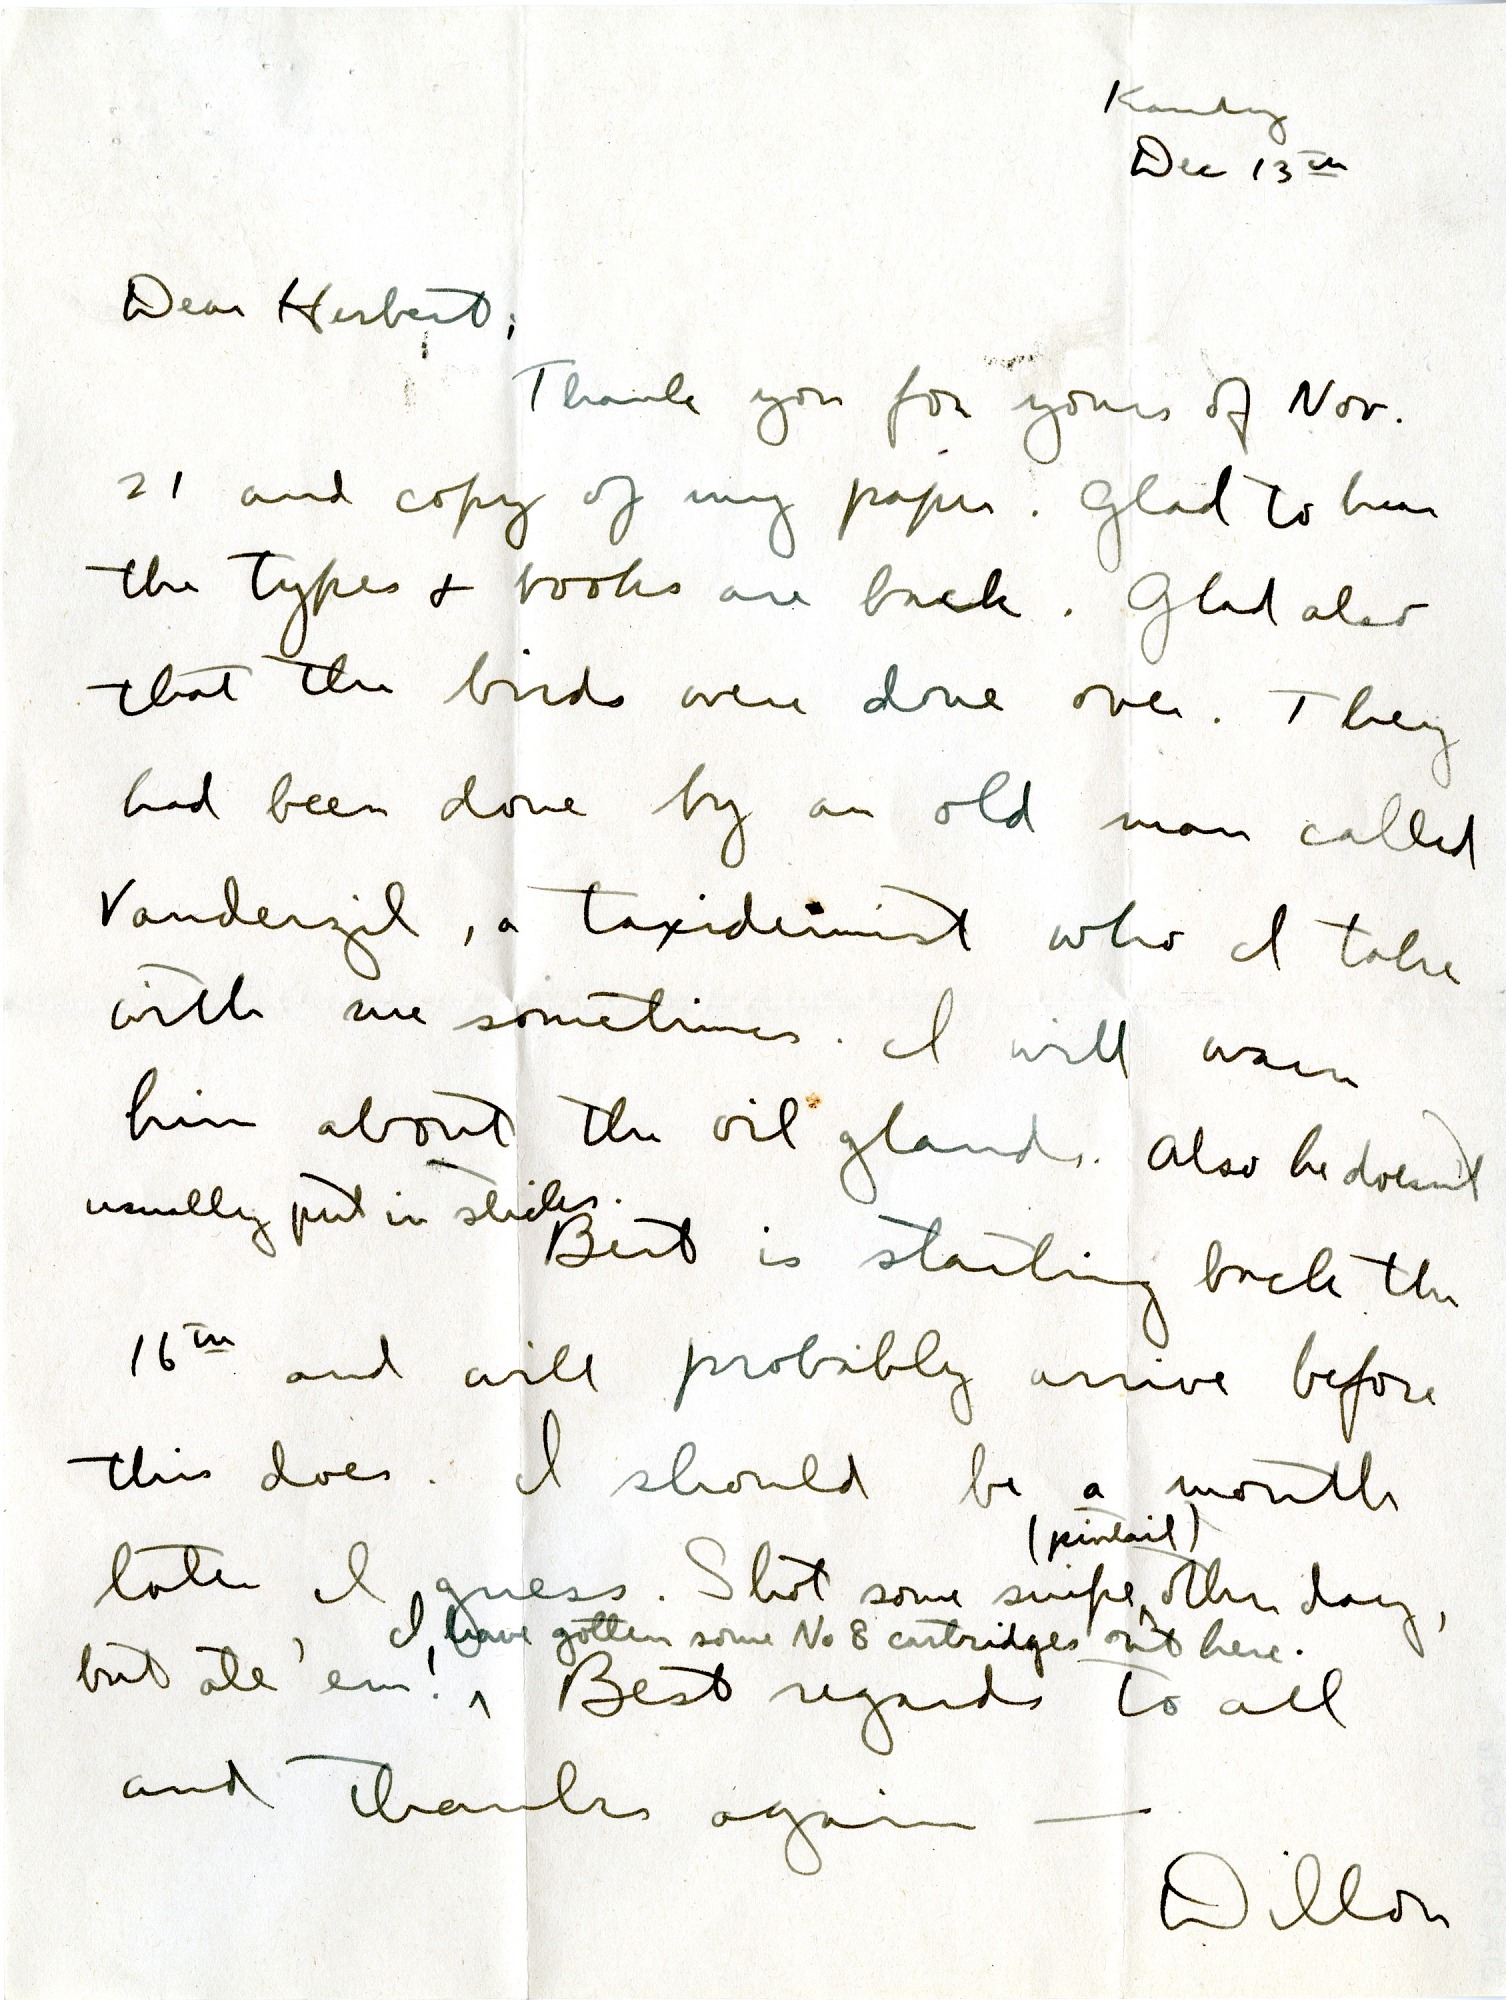 Kandy
Dec 13th
Dear Herbert,
Thank you for yours of Nov.
21 and copy of my paper. Glad to hear
the types & books are back. Glad also
that the birds were done over. They
had been done by an old man called
Vanderzil, a taxidermist who I take
with me sometimes. I will warn
him about the oil glands. Also he doesn't
usually put in sticks.
Bert is starting back the
16th and will probably arrive before
this does. I should be a month
(pintail)
later I guess. Shot some snipe ^ other day,
I have gotten some No 8 cartridges out here.
but ate 'em! ^ Best regards to all
and thanks again —
Dillon